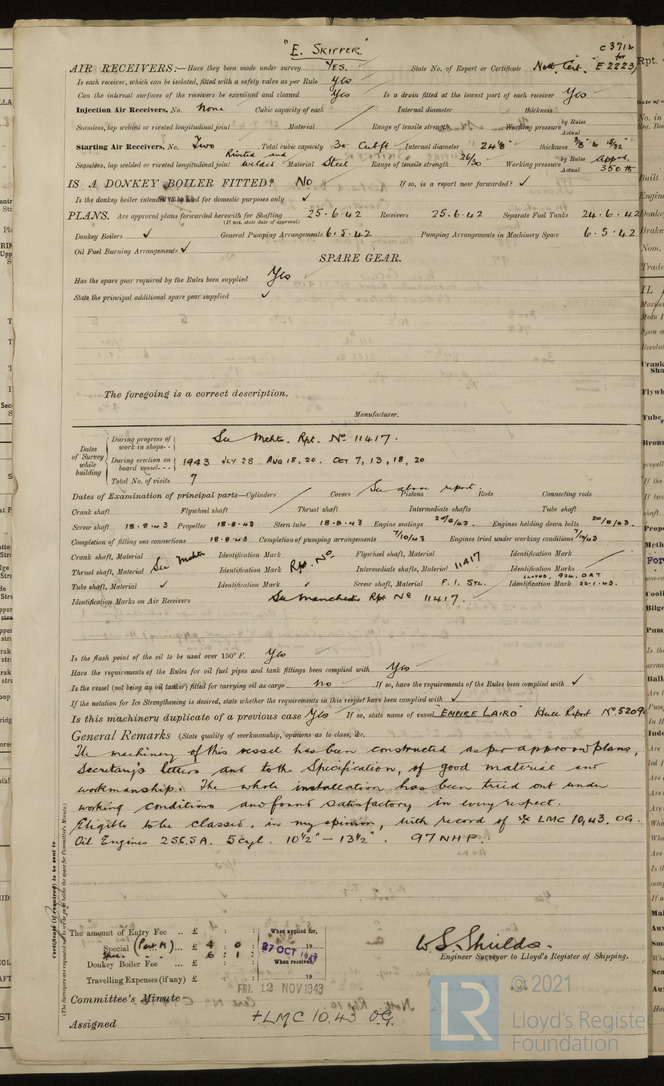 "E. SKIPPER"
C 3712
for
AIR RECEIVERS:—Have they been made under survey YES. State No. of Report or Certificate Nott. Cert. E 2223/
Is each receiver, which can be isolated, fitted with a safety valve as per Rule Yes
Can the internal surfaces of the receivers be examined and cleaned Yes Is a drain fitted at the lowest part of each receiver Yes
Injection Air Receivers, No. None Cubic capacity of each Internal diameter thickness
Seamless, lap welded or riveted longitudinal joint Material Range of tensile strength Working pressure by Rules Actual
Starting Air Receivers, No. Two Total cubic capacity 30 Cub ft Internal diameter 24"
Seamless, lap welded or riveted longitudinal joint Riveted and welded Material Steel Range of tensile strength 26/30 Working pressure by Rules Appd. Actual 350 lb
IS A DONKEY BOILER FITTED? No If so, is a report now forwarded? ✓
Is the donkey boiler intended to be used for domestic purposes only ✓
PLANS. Are approved plans forwarded herewith for Shafting 25.6.42 Receivers 25.6.42 Separate Fuel Tanks 24.6.42
(If not, state date of approval)
Donkey Boilers ✓ General Pumping Arrangements 6.5.42 Pumping Arrangements in Machinery Space 6.5.42
Oil Fuel Burning Arrangements ✓
SPARE GEAR.
Has the spare gear required by the Rules been supplied Yes
State the principal additional spare gear supplied ✓
The foregoing is a correct description,
Manufacturer.
Dates of Survey while building
During progress of work in shops-- See Mchtr. Rpt. No 11417.
During erection on board vessel--- 1943 JLY 28 AUG 18, 20. OCT 7, 13, 18, 20
Total No. of visits 7
Dates of Examination of principal parts—Cylinders Covers Pistons Rods Connecting rods
See above report.
Crank shaft Flywheel shaft Thrust shaft Intermediate shafts Tube shaft
Screw shaft 18.8.43 Propeller 18.8.43 Stern tube 18.8.43 Engine seatings 20/8/43. Engines holding down bolts 20/8/43.
Completion of fitting sea connections 18.8.43 Completion of pumping arrangements 7/10/43 Engines tried under working conditions 7/10/43
Crank shaft, Material Identification Mark Flywheel shaft, Material Identification Mark
Thrust shaft, Material See Mchtr Identification Mark Rpt. No Intermediate shafts, Material 11417 Identification Marks
Tube shaft, Material ✓ Identification Mark ✓ Screw shaft, Material F.I. Stl. Identification Mark 22.1.43.
Identification Marks on Air Receivers See Manchester Rpt No 11417.
Is the flash point of the oil to be used over 150° F. Yes
Have the requirements of the Rules for oil fuel pipes and tank fittings been complied with Yes
Is the vessel (not being an oil tanker) fitted for carrying oil as cargo No If so, have the requirements of the Rules been complied with ✓
If the notation for Ice Strengthening is desired, state whether the requirements in this respect have been complied with ✓
Is this machinery duplicate of a previous case Yes If so, state name of vessel "EMPIRE LAIRD" Hull Report No 5209
General Remarks (State quality of workmanship, opinions as to class, &c.
The machinery of this vessel has been constructed as per approved plans,
Secretary's letters and to the Specification, of good material and
workmanship. The whole installation has been tried out under
working conditions and found satisfactory in every respect.
Eligible to be classed, in my opinion, with record of LMC 10,43. OG.
Oil Engines 2SCSA. 5cyl. 10½" – 13½". 97 NHP.
Certificate (if required) to be sent to
(The Surveyors are requested not to write on or below the space for Committee's Minute.)
The amount of Entry Fee .. £ : :
Special (Part M) ... £ 4 : 0 :
Spec. 6 : 1 :
Donkey Boiler Fee ... £ : :
Travelling Expenses (if any) £ : :
When applied for,
27 OCT 1943
When received,
19
W. S. Shields.
Engineer Surveyor to Lloyd's Register of Shipping.
FRI. 12 NOV 1943
Committee's Minute
Assigned +LMC 10,43 O.G.
© 2021
LR
Lloyd's Register
Foundation